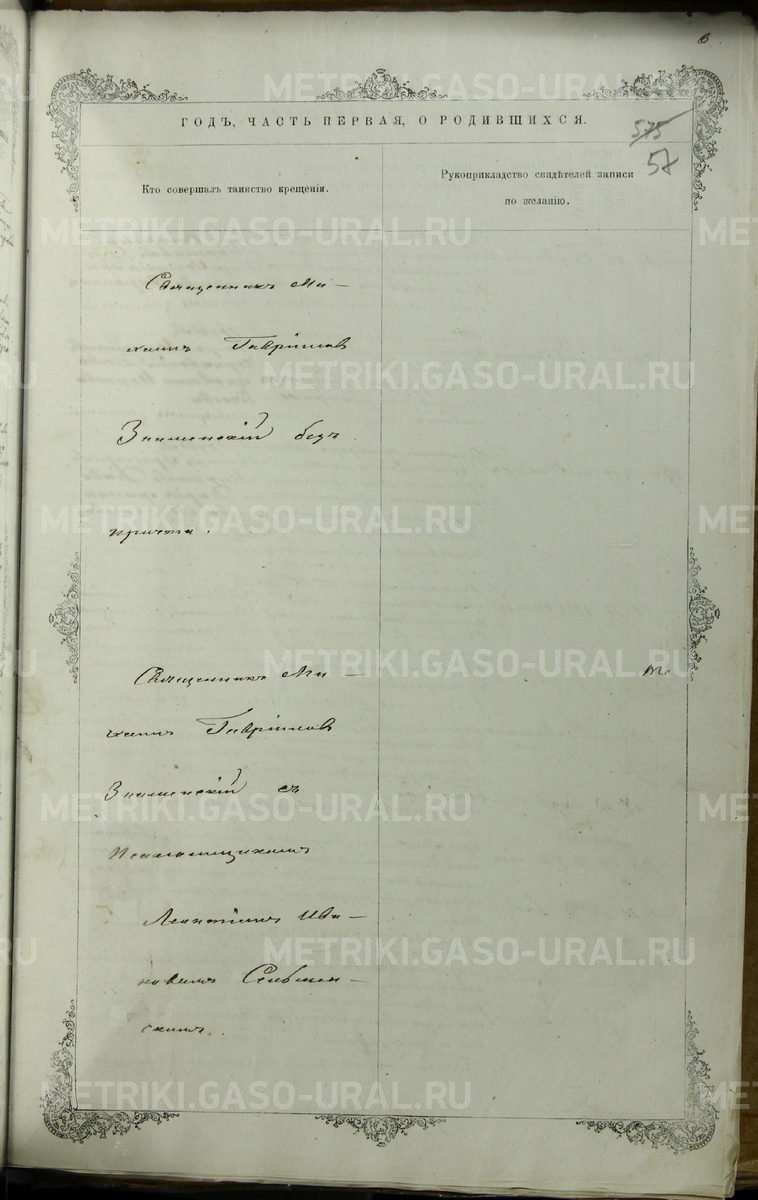 6
ГОДЪ, ЧАСТЬ ПЕРВАЯ, О РОДИВШИХСЯ.
575
57
Кто совершалъ таинство крещенія.
Рукоприкладство свидѣтелей записи
по желанію.
Священникъ Ми–
хаилъ Гавріиловъ
Знаменскій безъ
причта.
Священникъ Ми–
хаилъ Гавріиловъ
Знаменскій съ
Псаломщикомъ
Леонтіемъ Ива–
новымъ
скимъ.
METRIKI.GASO-URAL.RU